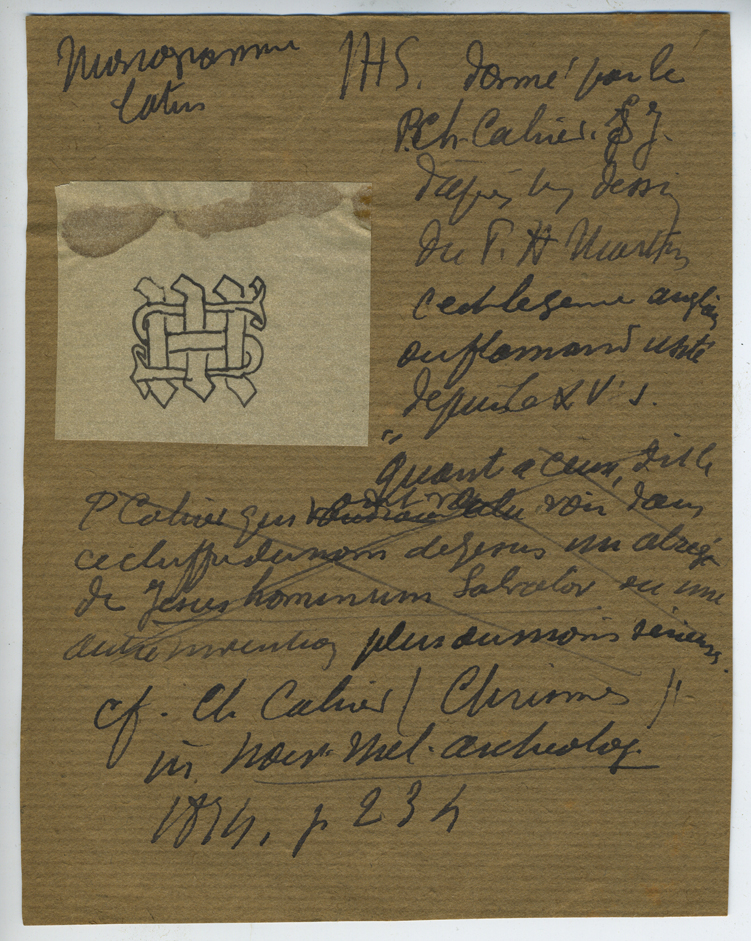 Monogramme
latin
IHS. donné par le
P. Ch. Cahier. S J.
d'après les dessins
du P. A Martin
c'est le genre anglais
ou flamand usité
depuis le XV's.
"Quant à ceux, dit le
P Cahier qui voir dans
ce chiffre du nom de Jesus un abrégé
de Jesus hominum Salvator ou une
autre invention plus ou moins sérieuse.
cf. Ch Cahier (Chrismes)".
in Nouv. Mel. archeolog.
1874, p 234